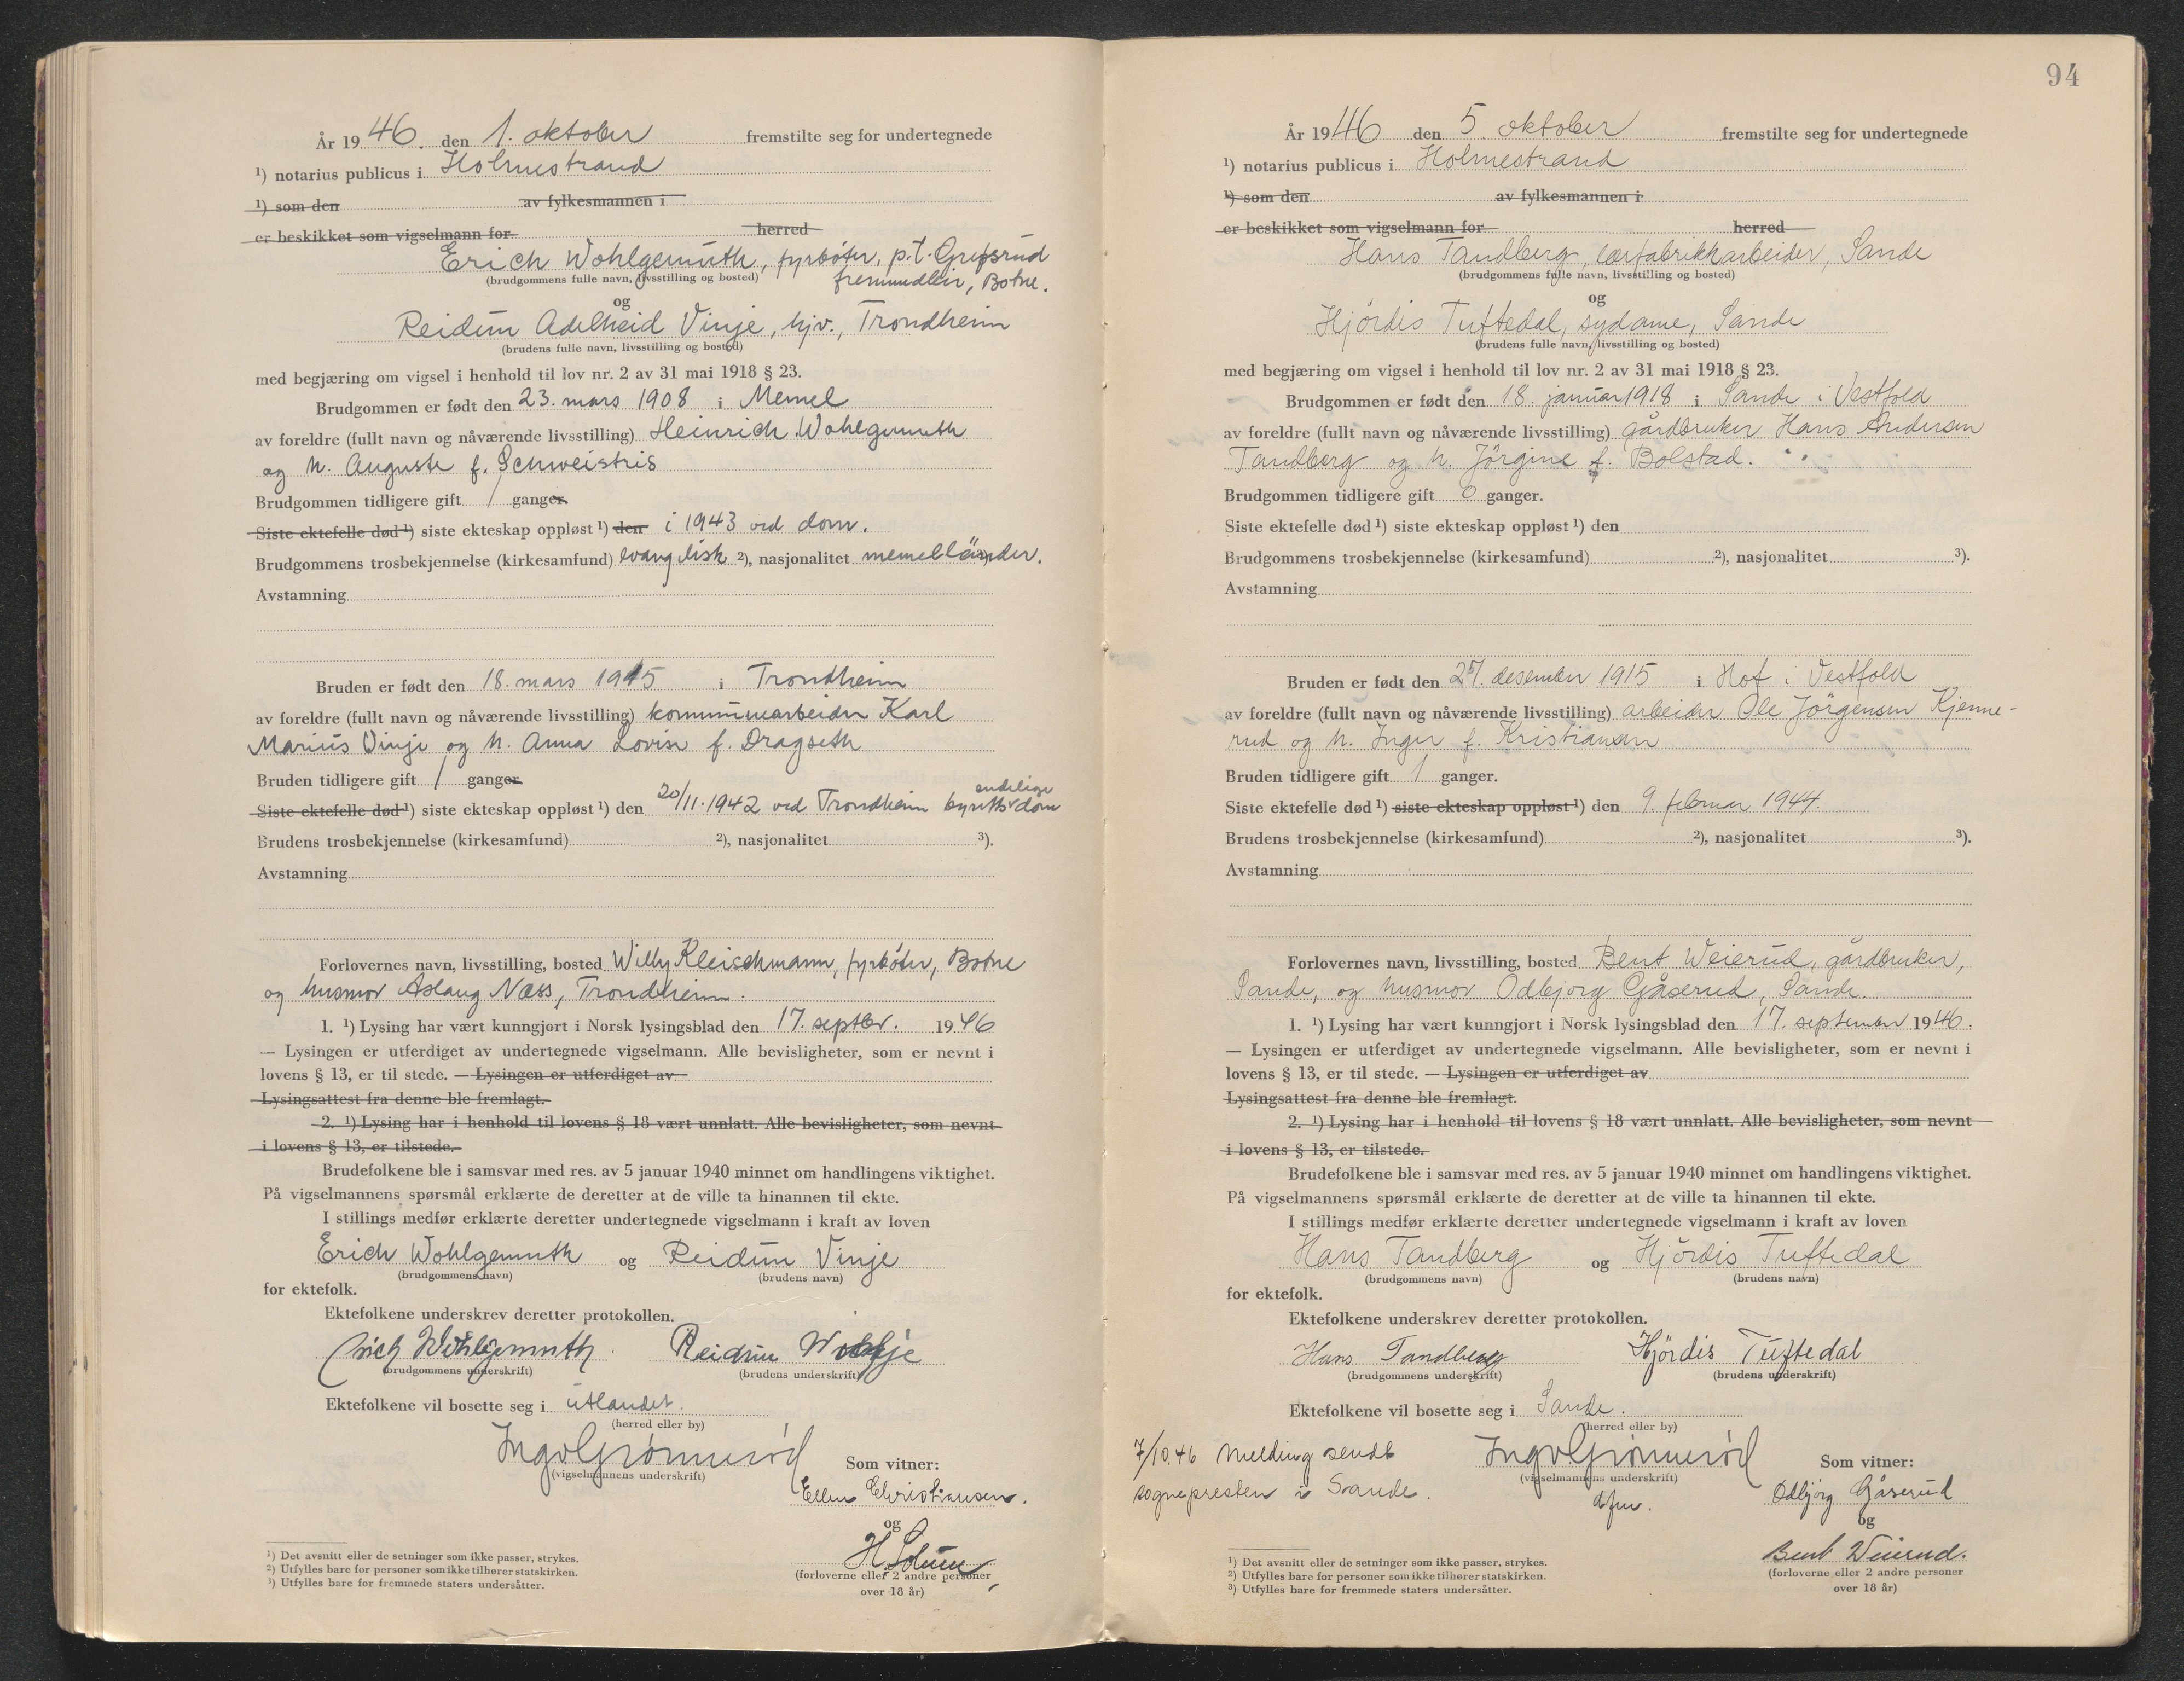 År 1946. den 1. oktober fremstilte seg for undertegnede
¹) notarius publicus i Holmestrand
¹) som den av fylkesmannen i
er beskikket som vigselmann for herred
Erich Wohlgemuth, fyrbøter, p.t. Grefsrud
(brudgommens fulle navn, livsstilling og bosted) fremmedleir, Botne.
og
Reidun Adelheid Vinje, hjv., Trondheim
(brudens fulle navn, livsstilling og bosted)
med begjæring om vigsel i henhold til lov nr. 2 av 31 mai 1918 § 23.
Brudgommen er født den 23. mars 1908 i Memel
av foreldre (fullt navn og nåværende livsstilling) Heinrich Wohlgemuth
og h. Auguste f. Schweistris
Brudgommen tidligere gift 1 ganger.
Siste ektefelle død ¹) siste ekteskap oppløst ¹) den i 1943 ved dom.
Brudgommens trosbekjennelse (kirkesamfund) evangelisk ²), nasjonalitet memelländer.
Avstamning
Bruden er født den 18. mars 1915 i Trondheim
av foreldre (fullt navn og nåværende livsstilling) kommunearbeider Karl
Marius Vinje og h. Anna Lovise f. Dragseth
Bruden tidligere gift 1 ganger.
endelige
Siste ektefelle død ¹) siste ekteskap oppløst ¹) den 20/11.1942 ved Trondheim byretts dom
Brudens trosbekjennelse (kirkesamfund) ²), nasjonalitet ³).
Avstamning
Forlovernes navn, livsstilling, bosted Willy Kleischmann, fyrbøter, Botne
og husmor Aslaug Næss, Trondheim.
1. ¹) Lysing har vært kunngjort i Norsk lysingsblad den 17. septbr. 1946
— Lysingen er utferdiget av undertegnede vigselmann. Alle bevisligheter, som er nevnt i
lovens § 13, er til stede. — Lysingen er utferdiget av
Lysingsattest fra denne ble fremlagt.
2. ¹) Lysing har i henhold til lovens § 18 vært unnlatt. Alle bevisligheter, som nevnt
i lovens § 13, er tilstede.
Brudefolkene ble i samsvar med res. av 5 januar 1940 minnet om handlingens viktighet.
På vigselmannens spørsmål erklærte de deretter at de ville ta hinannen til ekte.
I stillings medfør erklærte deretter undertegnede vigselmann i kraft av loven
Erich Wohlgemuth og Reidun Vinje
(brudgommens navn) (brudens navn)
for ektefolk.
Ektefolkene underskrev deretter protokollen.
Erich Wohlgemuth. Reidun Vinje
(brudgommens underskrift) (brudens underskrift)
Ektefolkene vil bosette seg i utlandet.
(herred eller by)
Ingv Grønnerød
(vigselmannens underskrift) Som vitner:
Ellen Christiansen.
og
H. Solum
(forloverne eller 2 andre personer
over 18 år)
¹) Det avsnitt eller de setninger som ikke passer, strykes.
²) Utfylles bare for personer som ikke tilhører statskirken.
³) Utfylles bare for fremmede staters undersåtter.
94
År 1946 den 5. oktober fremstilte seg for undertegnede
¹) notarius publicus i Holmestrand
¹) som den av fylkesmannen i
er beskikket som vigselmann for herred
Hans Tandberg, lærfabrikkarbeider, Sande
(brudgommens fulle navn, livsstilling og bosted)
og
Hjördis Tuftedal, sydame, Sande
(brudens fulle navn, livsstilling og bosted)
med begjæring om vigsel i henhold til lov nr. 2 av 31 mai 1918 § 23.
Brudgommen er født den 18. januar 1918 i Sande i Vestfold
av foreldre (fullt navn og nåværende livsstilling) gårdbruker Hans Andersen
Tandberg og h. Jörgine f. Bolstad.
Brudgommen tidligere gift 0 ganger.
Siste ektefelle død ¹) siste ekteskap oppløst ¹) den
Brudgommens trosbekjennelse (kirkesamfund) ²), nasjonalitet ³).
Avstamning
Bruden er født den 27. desember 1915 i Hof i Vestfold
av foreldre (fullt navn og nåværende livsstilling) arbeider Ole Jörgensen Kjenne-
rud og h. Inger f. Kristiansen
Bruden tidligere gift 1 ganger.
Siste ektefelle død ¹) siste ekteskap oppløst ¹) den 9. februar 1944.
Brudens trosbekjennelse (kirkesamfund) ²), nasjonalitet ³).
Avstamning
Forlovernes navn, livsstilling, bosted Bent Weierud, gårdbruker,
Sande, og husmor Odbjørg Gåserud, Sande.
1. ¹) Lysing har vært kunngjort i Norsk lysingsblad den 17. september 1946.
— Lysingen er utferdiget av undertegnede vigselmann. Alle bevisligheter, som er nevnt i
lovens § 13, er til stede. — Lysingen er utferdiget av
Lysingsattest fra denne ble fremlagt.
2. ¹) Lysing har i henhold til lovens § 18 vært unnlatt. Alle bevisligheter, som nevnt
i lovens § 13, er tilstede.
Brudefolkene ble i samsvar med res. av 5 januar 1940 minnet om handlingens viktighet.
På vigselmannens spørsmål erklærte de deretter at de ville ta hinannen til ekte.
I stillings medfør erklærte deretter undertegnede vigselmann i kraft av loven
Hans Tandberg og Hjördis Tuftedal
(brudgommens navn) (brudens navn)
for ektefolk.
Ektefolkene underskrev deretter protokollen.
Hans Tandberg Hjördis Tuftedal
(brudgommens underskrift) (brudens underskrift)
Ektefolkene vil bosette seg i Sande.
(herred eller by)
7/10.46 Melding sendt Ingv Grønnerød Som vitner:
(vigselmannens underskrift)
sognepresten i Sande. dfm. Odbjørg Gåserud
og
Bent Weierud.
(forloverne eller 2 andre personer
over 18 år)
¹) Det avsnitt eller de setninger som ikke passer, strykes.
²) Utfylles bare for personer som ikke tilhører statskirken.
³) Utfylles bare for fremmede staters undersåtter.